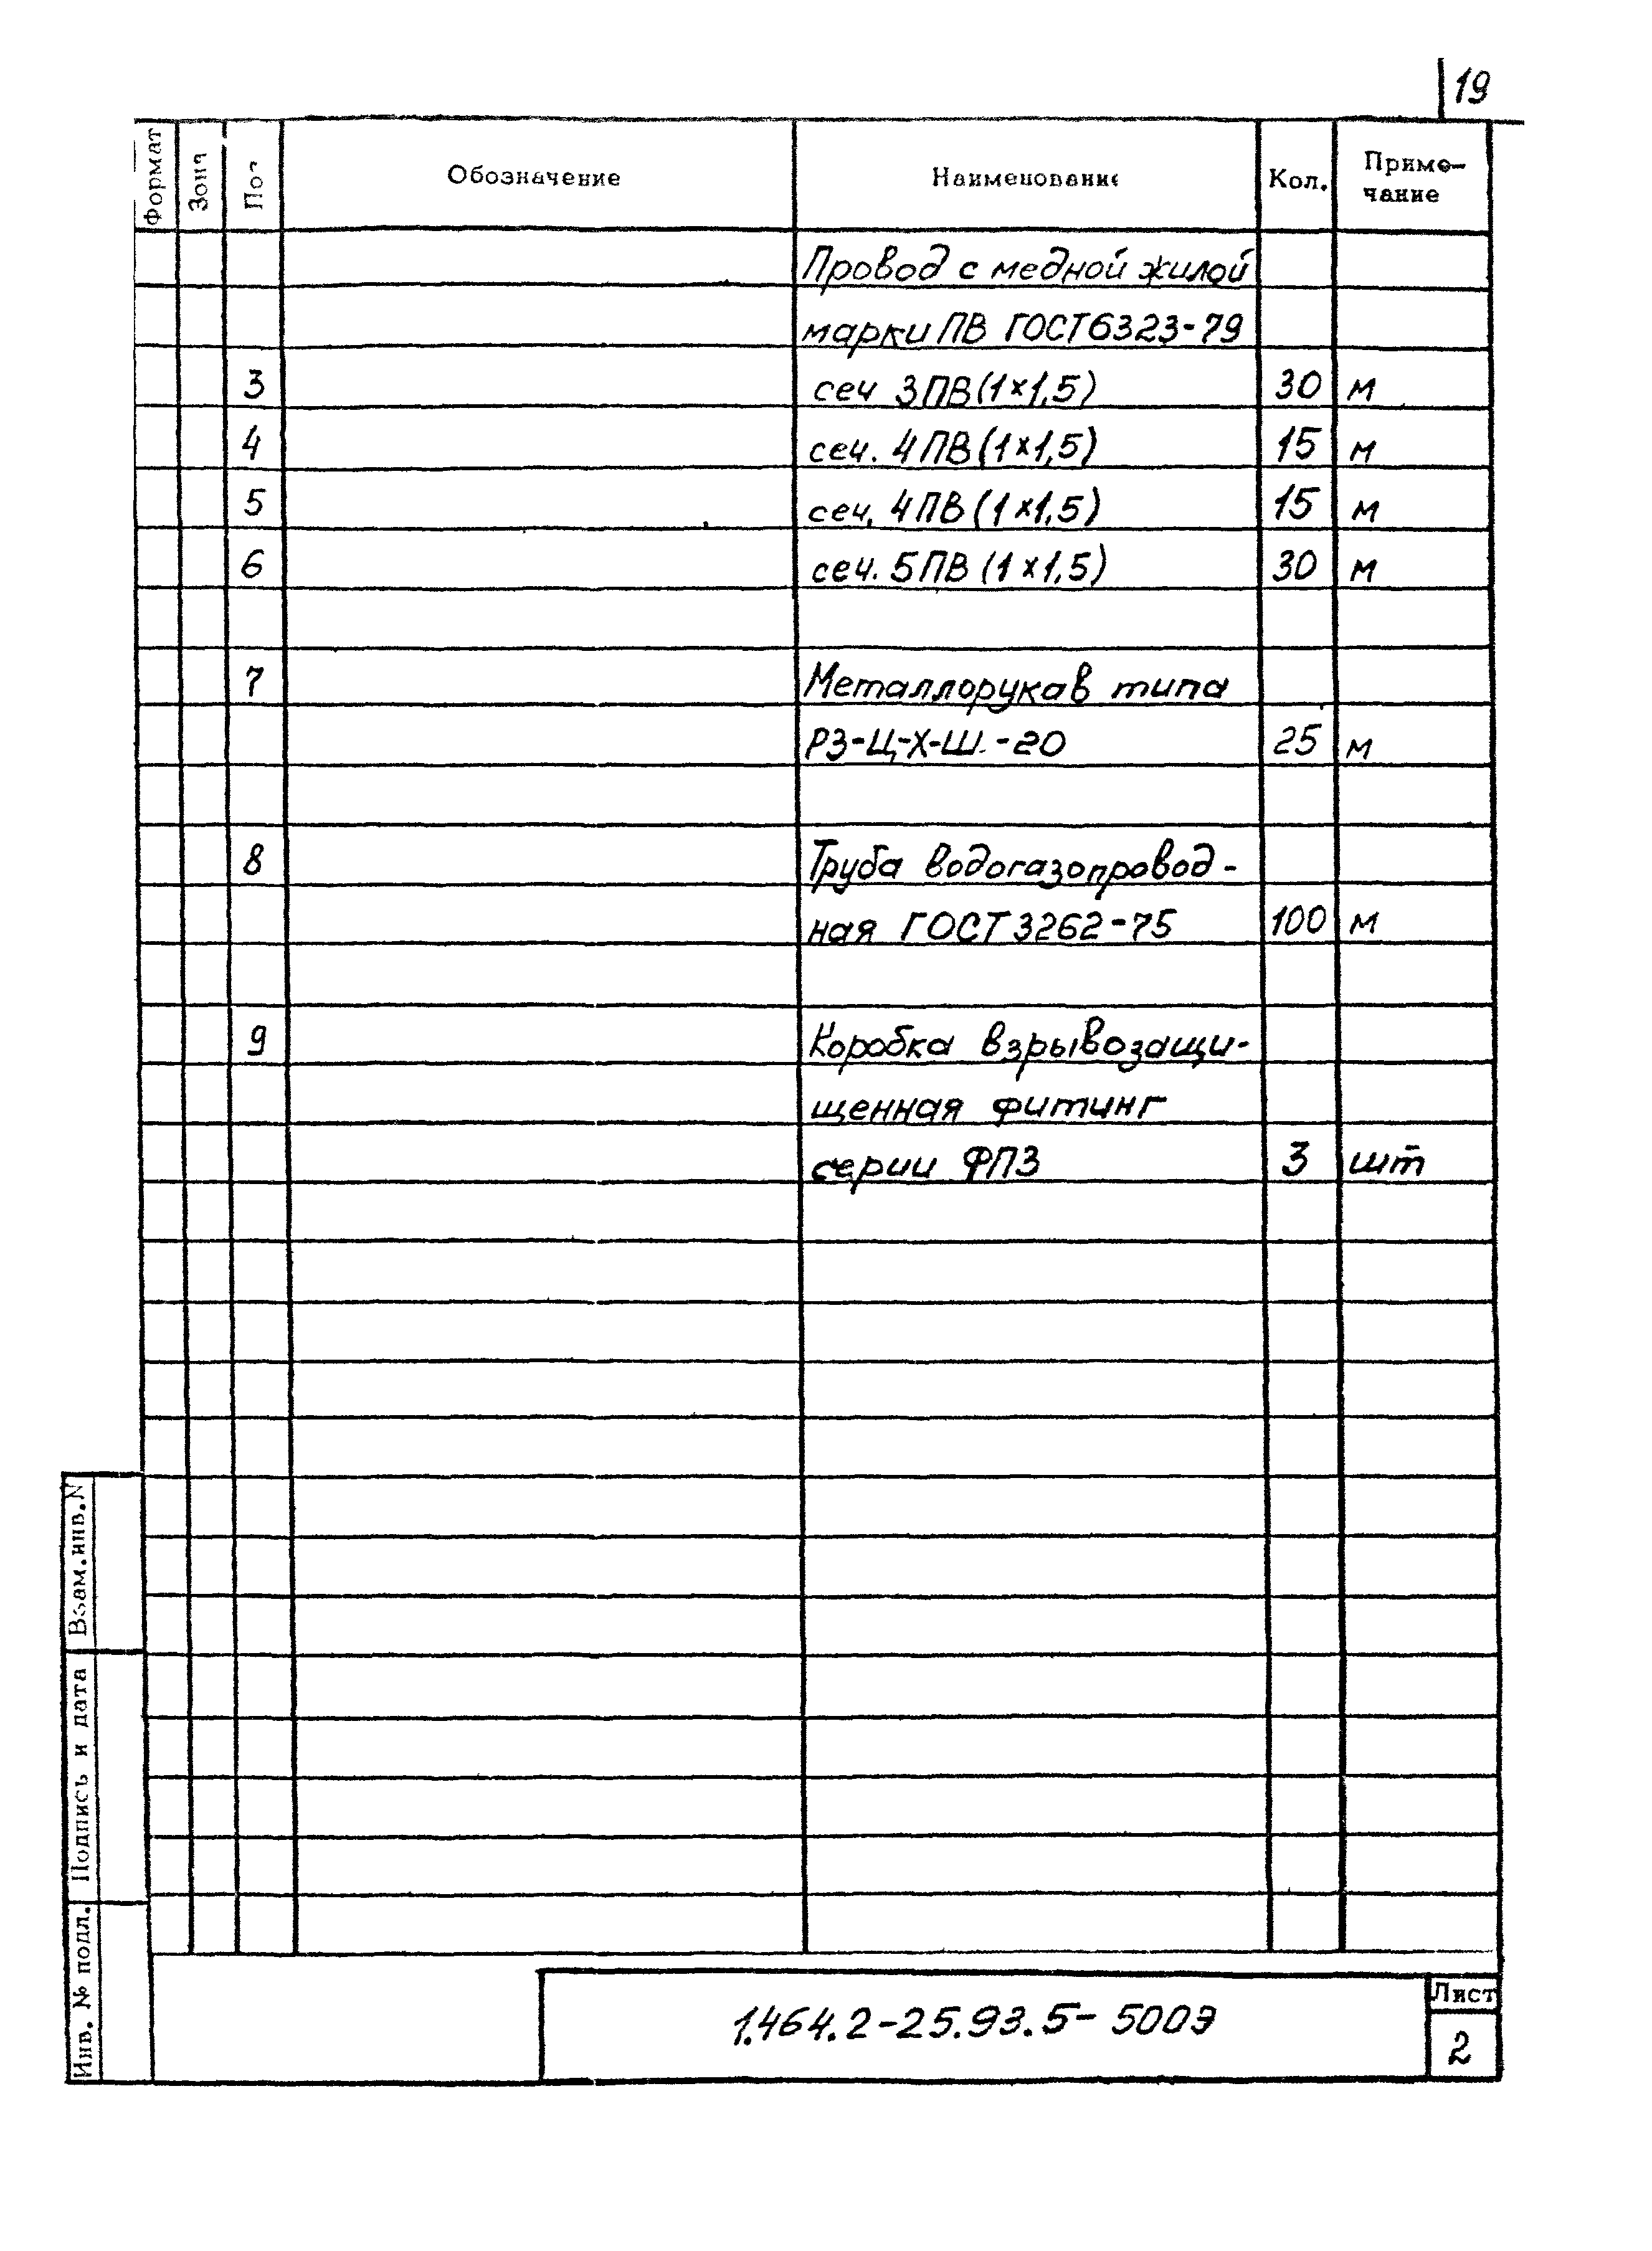 19
Формат Зона Поз Обозначение Наименование Кол. Приме-
чание
Провод с медной жилой
марки ПВ ГОСТ 6323-79
3 сеч 3ПВ(1×1,5) 30 м
4 сеч. 4ПВ(1×1,5) 15 м
5 сеч. 4ПВ(1×1,5) 15 м
6 сеч. 5ПВ(1×1,5) 30 м
7 Металлорукав типа
РЗ-Ц-Х-Ш.-20 25 м
8 Труба водогазопровод-
ная ГОСТ 3262-75 100 м
9 Коробка взрывозащи-
щенная фитинг
серии ФПЗ 3 шт
Взам.инв.N
Подпись и дата
Инв. № подл.
1.464.2-25.93.5-500Э
Лист
2